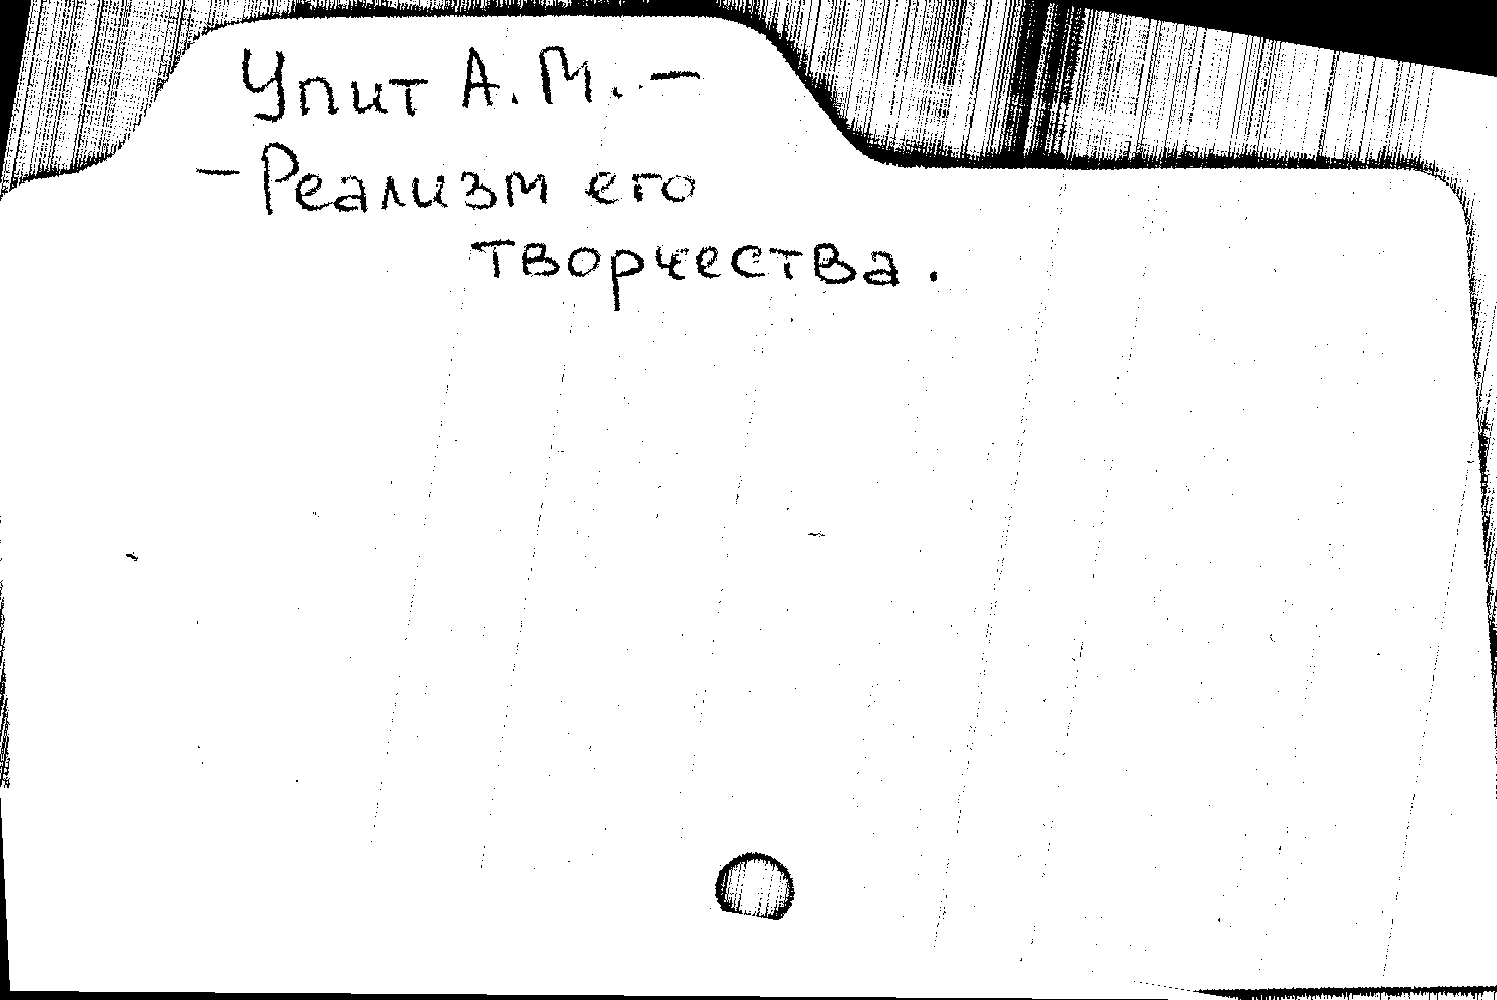 Упит А.М. —
— Реализм его
творчества.